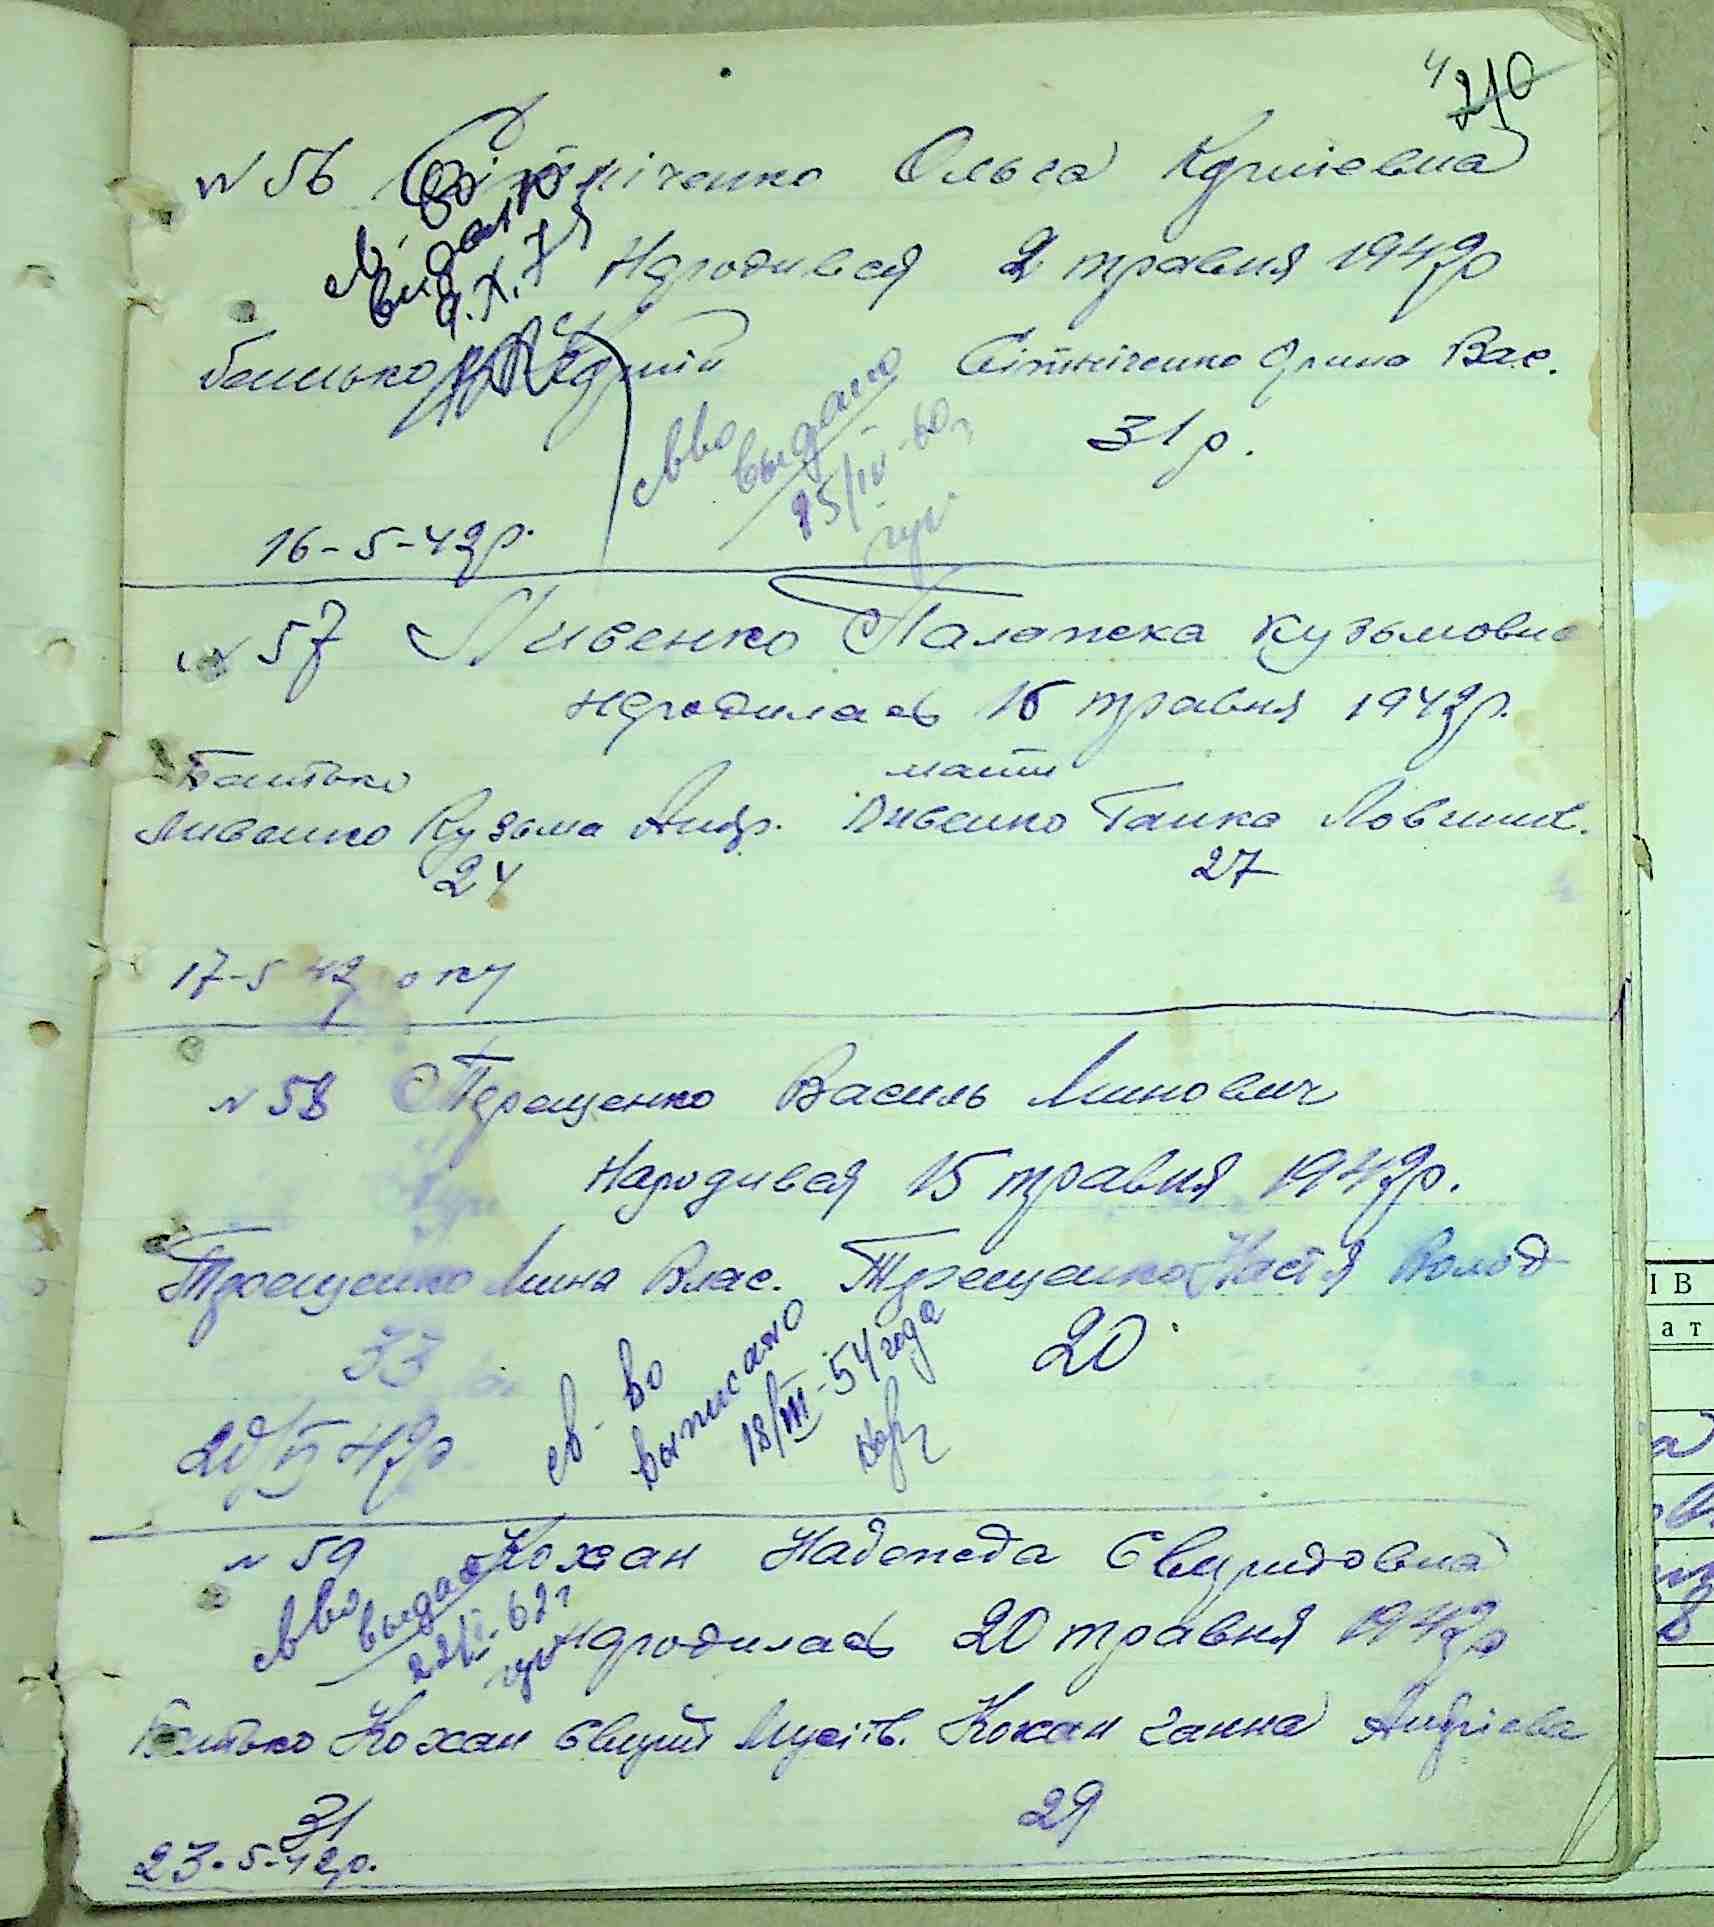 4
210
№ 56 Сітніченко Ольга Юхимевна
св. во
видано
Народився 2 травня 1942р
батько Сітніченко Орина Вас.
31 р.
св-во
выдано
25/IV-60г
16-5-42р.
№ 57 Пивенко Палажка Кузьмовна
народилась 16 травня 1942р.
Батько мати
Пивенко Кузьма Андр. Пивенко Ганка
24 27
17-5 42 року
№ 58 Терещенко Василь Минович
Народився 15 травня 1942р.
Терещенко Мина Влас. Терещенко Настя Волод
33 20
св-во
выписано
18/III-54 года
20/V 42р
№ 59 Кохан Надежда Свиридовна
св-во
выдано
62г
народилась 20 травня 1942р
Батько Кохан Свирид Мусієв. Кохан Ганна Андріевна
31 29
23-5-42р.